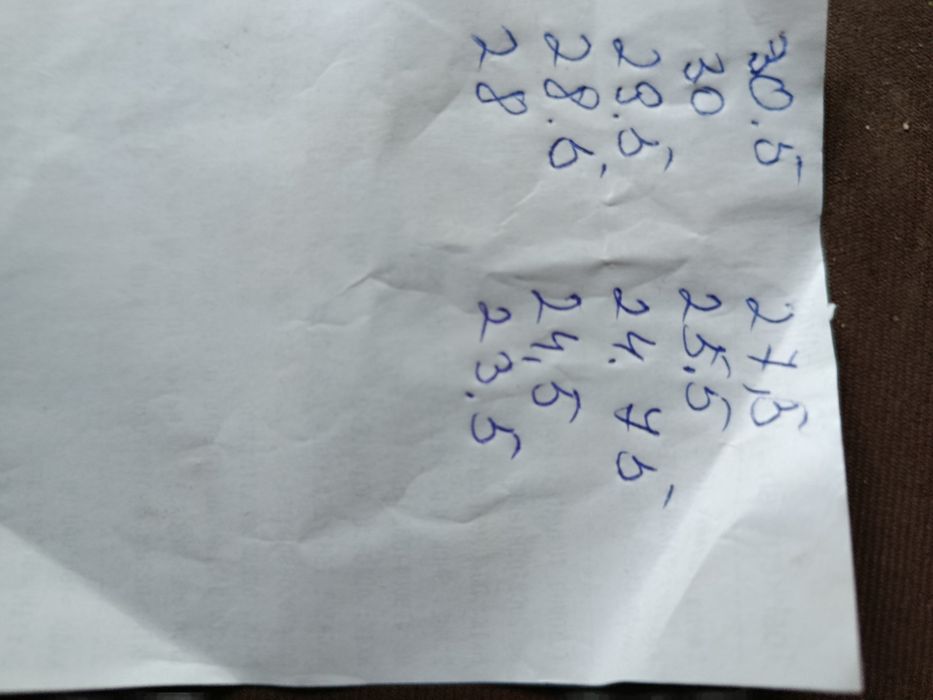 30.5 27,5
30 25.5
29.5 24.75
28.5 24,5
28 23.5